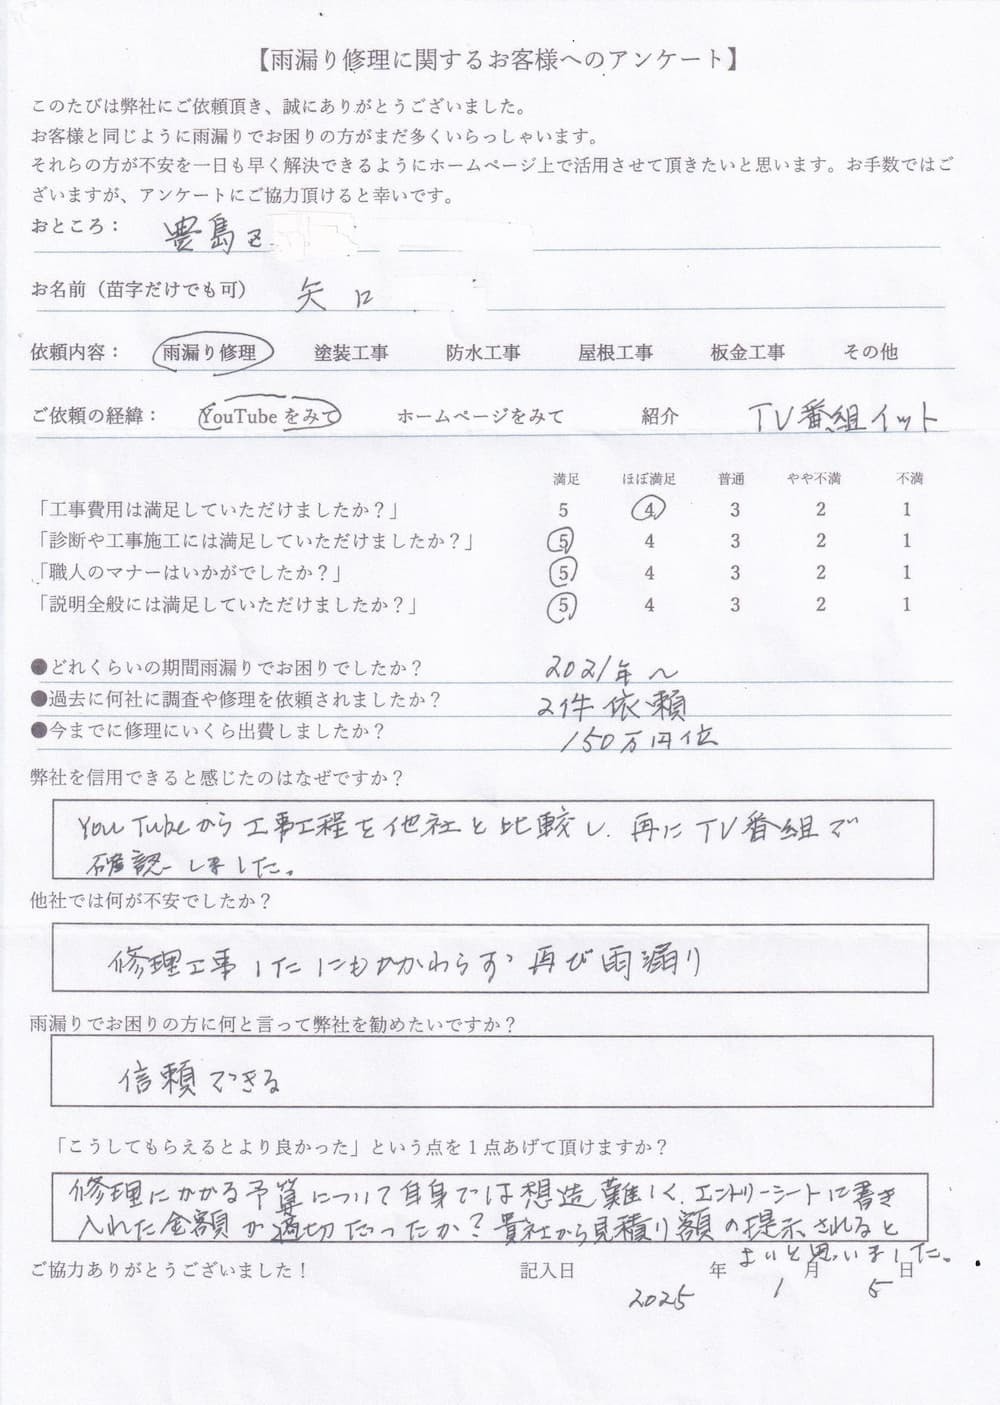 【雨漏り修理に関するお客様へのアンケート】
このたびは弊社にご依頼頂き、誠にありがとうございました。
お客様と同じように雨漏りでお困りの方がまだ多くいらっしゃいます。
それらの方が不安を一日も早く解決できるようにホームページ上で活用させて頂きたいと思います。お手数ではご
ざいますが、アンケートにご協力頂けると幸いです。
おところ： 豊島区
お名前（苗字だけでも可） 矢口
依頼内容： 雨漏り修理 塗装工事 防水工事 屋根工事 板金工事 その他
ご依頼の経緯： YouTubeをみて ホームページをみて 紹介 TV番組イット
満足 ほぼ満足 普通 やや不満 不満
「工事費用は満足していただけましたか？」 5 4 3 2 1
「診断や工事施工には満足していただけましたか？」 5 4 3 2 1
「職人のマナーはいかがでしたか？」 5 4 3 2 1
「説明全般には満足していただけましたか？」 5 4 3 2 1
●どれくらいの期間雨漏りでお困りでしたか？ 2021年〜
●過去に何社に調査や修理を依頼されましたか？ 2件依頼
●今までに修理にいくら出費しましたか？ 150万円位
弊社を信用できると感じたのはなぜですか？
YouTubeから工事工程を他社と比較し、再にTV番組で
確認しました。
他社では何が不安でしたか？
修理工事したにもかかわらず再び雨漏り
雨漏りでお困りの方に何と言って弊社を勧めたいですか？
信頼できる
「こうしてもらえるとより良かった」という点を１点あげて頂けますか？
修理にかかる予算について自身では想造難しく、エントリーシートに書き
入れた金額が適切だったか？貴社から見積り額の提示されると
よいと思いました。
ご協力ありがとうございました！ 記入日 2025年 1月 5日